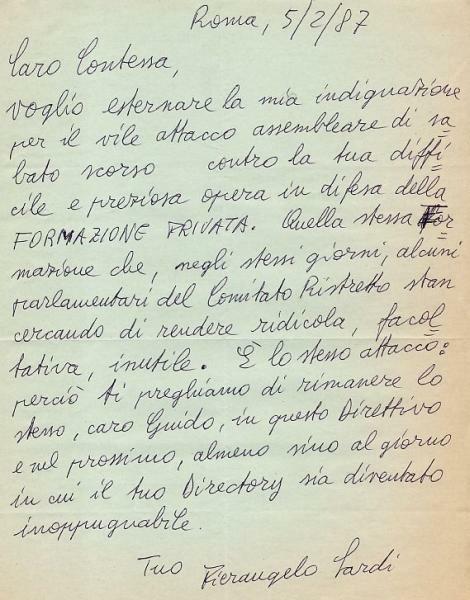 Roma, 5/2/87
Caro Contessa,
voglio esternare la mia indignazione
per il vile attacco assembleare di sa
bato scorso contro la tua diffi
cile e preziosa opera in difesa della
FORMAZIONE PRIVATA. Quella stessa for
mazione che, negli stessi giorni, alcuni
parlamentari del Comitato Ristretto stan
cercando di rendere ridicola, facol
tativa, inutile. È lo stesso attacco:
perciò ti preghiamo di rimanere lo
stesso, caro Guido, in questo Direttivo
e nel prossimo, almeno sino al giorno
in cui il tuo Directory sia diventato
inoppugnabile.
Tuo Pierangelo Sardi